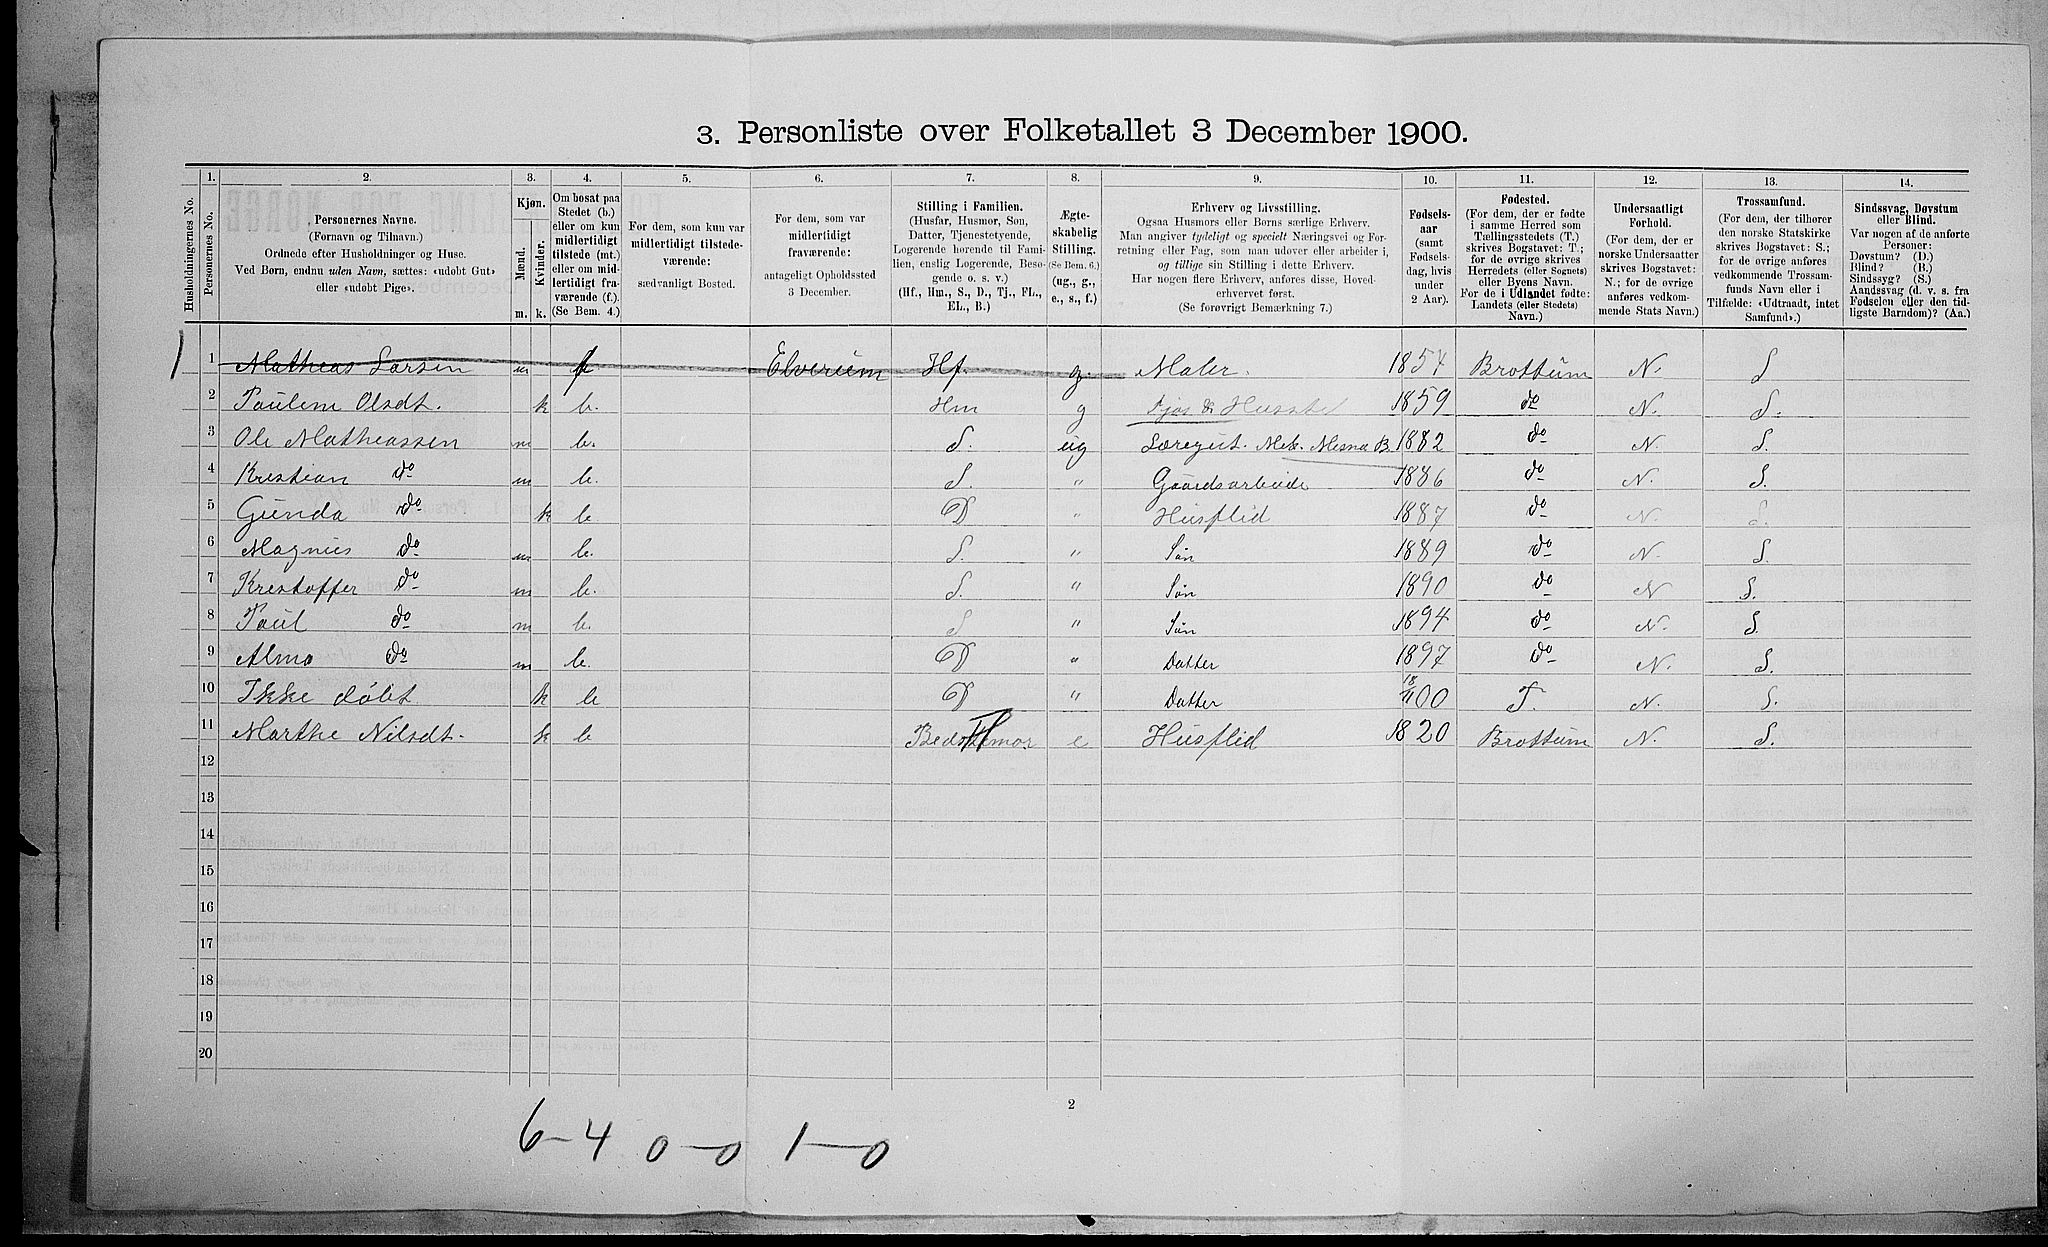 3. Personliste over Folketallet 3 December 1900.
Husholdningernes No.
1.
Personernes No.
2.
Personernes Navne.
(Fornavn og Tilnavn.)
Ordnede efter Husholdninger og Huse.
Ved Børn, endnu uden Navn, sættes: «udøbt Gut»
eller «udøbt Pige».
3.
Kjøn.
Mænd.
Kvinder.
m. k.
4.
Om bosat paa
Stedet (b.)
eller om kun
midlertidigt
tilstede (mt.)
eller om mid-
lertidigt fra-
værende (f.).
(Se Bem. 4.)
5.
For dem, som kun var
midlertidigt tilstede-
værende:
sædvanligt Bosted.
6.
For dem, som var
midlertidigt
fraværende:
antageligt Opholdssted
3 December.
7.
Stilling i Familien.
(Husfar, Husmor, Søn,
Datter, Tjenestetyende,
Logerende hørende til Fami-
lien, enslig Logerende, Besø-
gende o. s. v.)
(Hf., Hm., S., D., Tj., FL.,
EL., B.)
8.
Ægte-
skabelig
Stilling.
(Se Bem. 6.)
(ug., g.,
e., s., f.)
9.
Erhverv og Livsstilling.
Ogsaa Husmors eller Børns særlige Erhverv.
Man angiver tydeligt og specielt Næringsvei og For-
retning eller Fag, som man udøver eller arbeider i,
og tillige sin Stilling i dette Erhverv.
Har nogen flere Erhverv, anføres disse, Hoved-
erhvervet først.
(Se forøvrigt Bemærkning 7.)
10.
Fødsels-
aar
(samt
Fødsels-
dag, hvis
under
2 Aar).
11.
Fødested.
(For dem, der er fødte
i samme Herred som
Tællingsstedets (T.)
skrives Bogstavet: T.;
for de øvrige skrives
Herredets (eller Sognets)
eller Byens Navn.
For de i Udlandet fødte:
Landets (eller Stedets)
Navn.)
12.
Undersaatligt
Forhold.
(For dem, der er
norske Undersaatter
skrives Bogstavet:
N.; for de øvrige
anføres vedkom-
mende Stats Navn.)
13.
Trossamfund.
(For dem, der tilhører
den norske Statskirke
skrives Bogstavet: S.;
for de øvrige anføres
vedkommende Trossam-
funds Navn eller i
Tilfælde: «Udtraadt, intet
Samfund».)
14.
Sindssvag, Døvstum
eller Blind.
Var nogen af de anførte
Personer:
Døvstum? (D.)
Blind? (B.)
Sindssyg? (S.)
Aandssvag (d. v. s. fra
Fødselen eller den tid-
ligste Barndom)? (Aa.)
1 1 Matheas Larsen m f Elverum Hf. g. Maler. 1854 Brottum N. S
2 Pauline Olsdt. k b. Hm g Fjøs & Husstel 1859 do N. S.
3 Ole Matheassen m b. S. ug Læregut. Mek. Mesna B. 1882 do N. S.
4 Kristian do m b. S. " Gaardsarbeide 1886 do N. S.
5 Gunda do k b D " Husflid 1887 do N. S.
6 Magnus do m b. S. " Søn 1889 do N. S.
7 Krestoffer do m b. S. " Søn 1890 do N S.
8 Paul do m b. S " Søn 1894 do N. S.
9 Alma do m b. D " Datter 1897 do N. S.
10 Ikke døbt k b D " Datter 18/11 00 T. N. S.
11 Marthe Nilsdt. k b Bedstemor Fl e Husflid 1820 Brottum N. S.
12
13
14
15
16
17
18
19
20
2
6-4 0-0 1-0